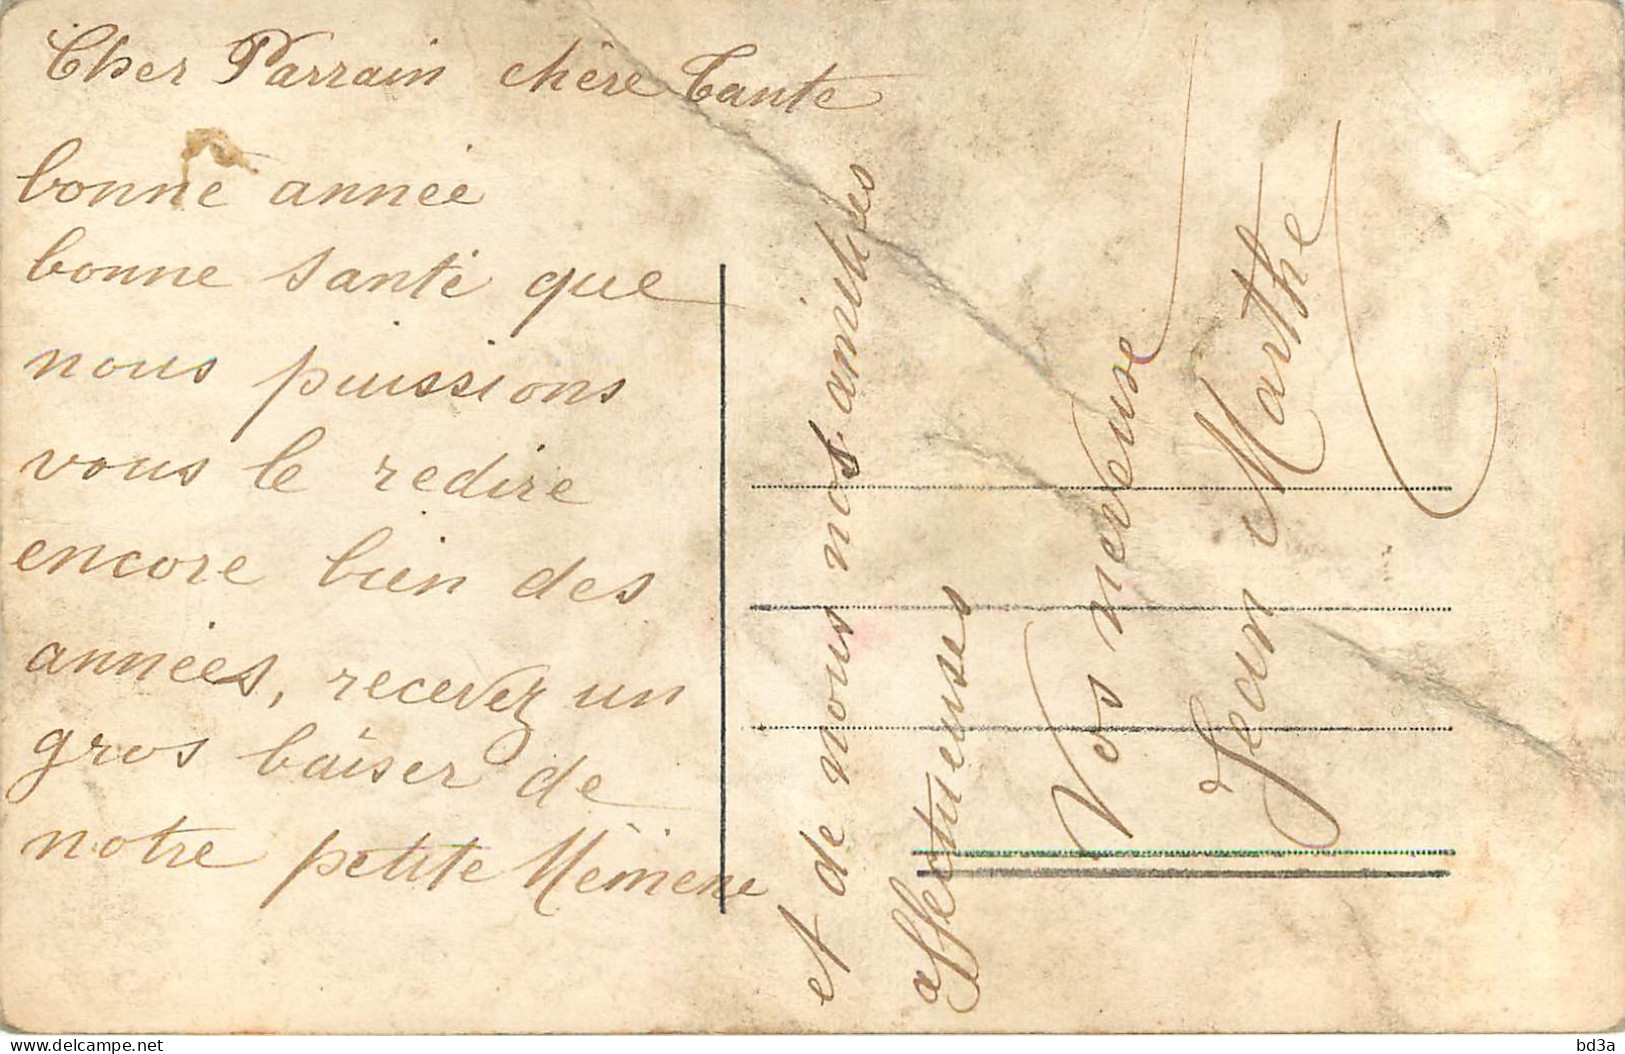 Cher Parrain chère Tante
bonne année
bonne santé que
nous puissions
vous le redire
encore bien des
années, recevez un
gros baiser de
notre petite Mémene
et de nous nos amitiés
affectueuses
Vos neveuse
Jean Marthe
delcampe.net
bd3a